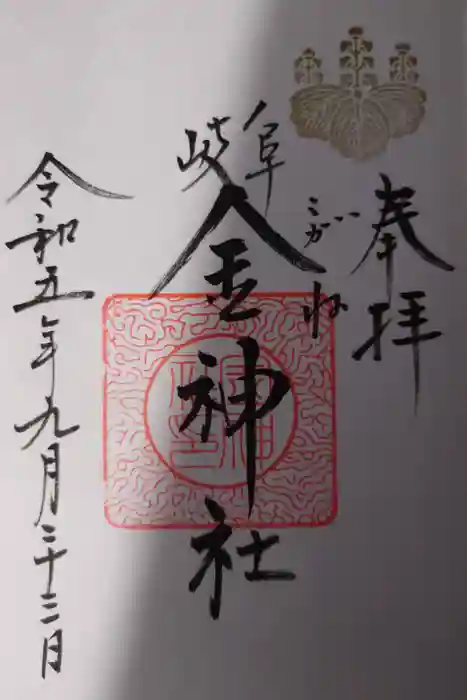 奉拝
こがね
岐阜
金神社
令和五年九月二十三日